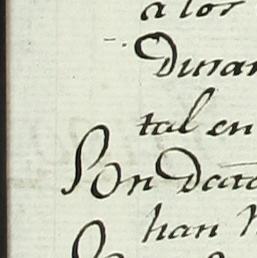 a los
Duran
tal en
Son Data
han